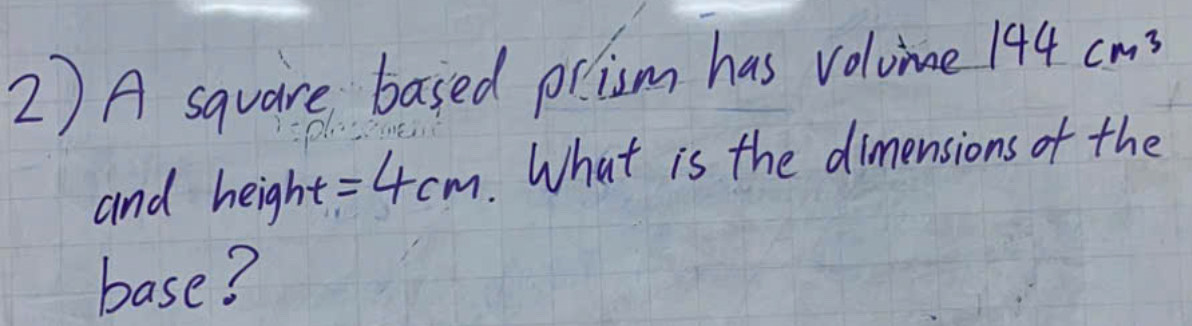 2) A square based prism has volume 144 cm³
and height = 4cm. What is the dimensions of the
base?